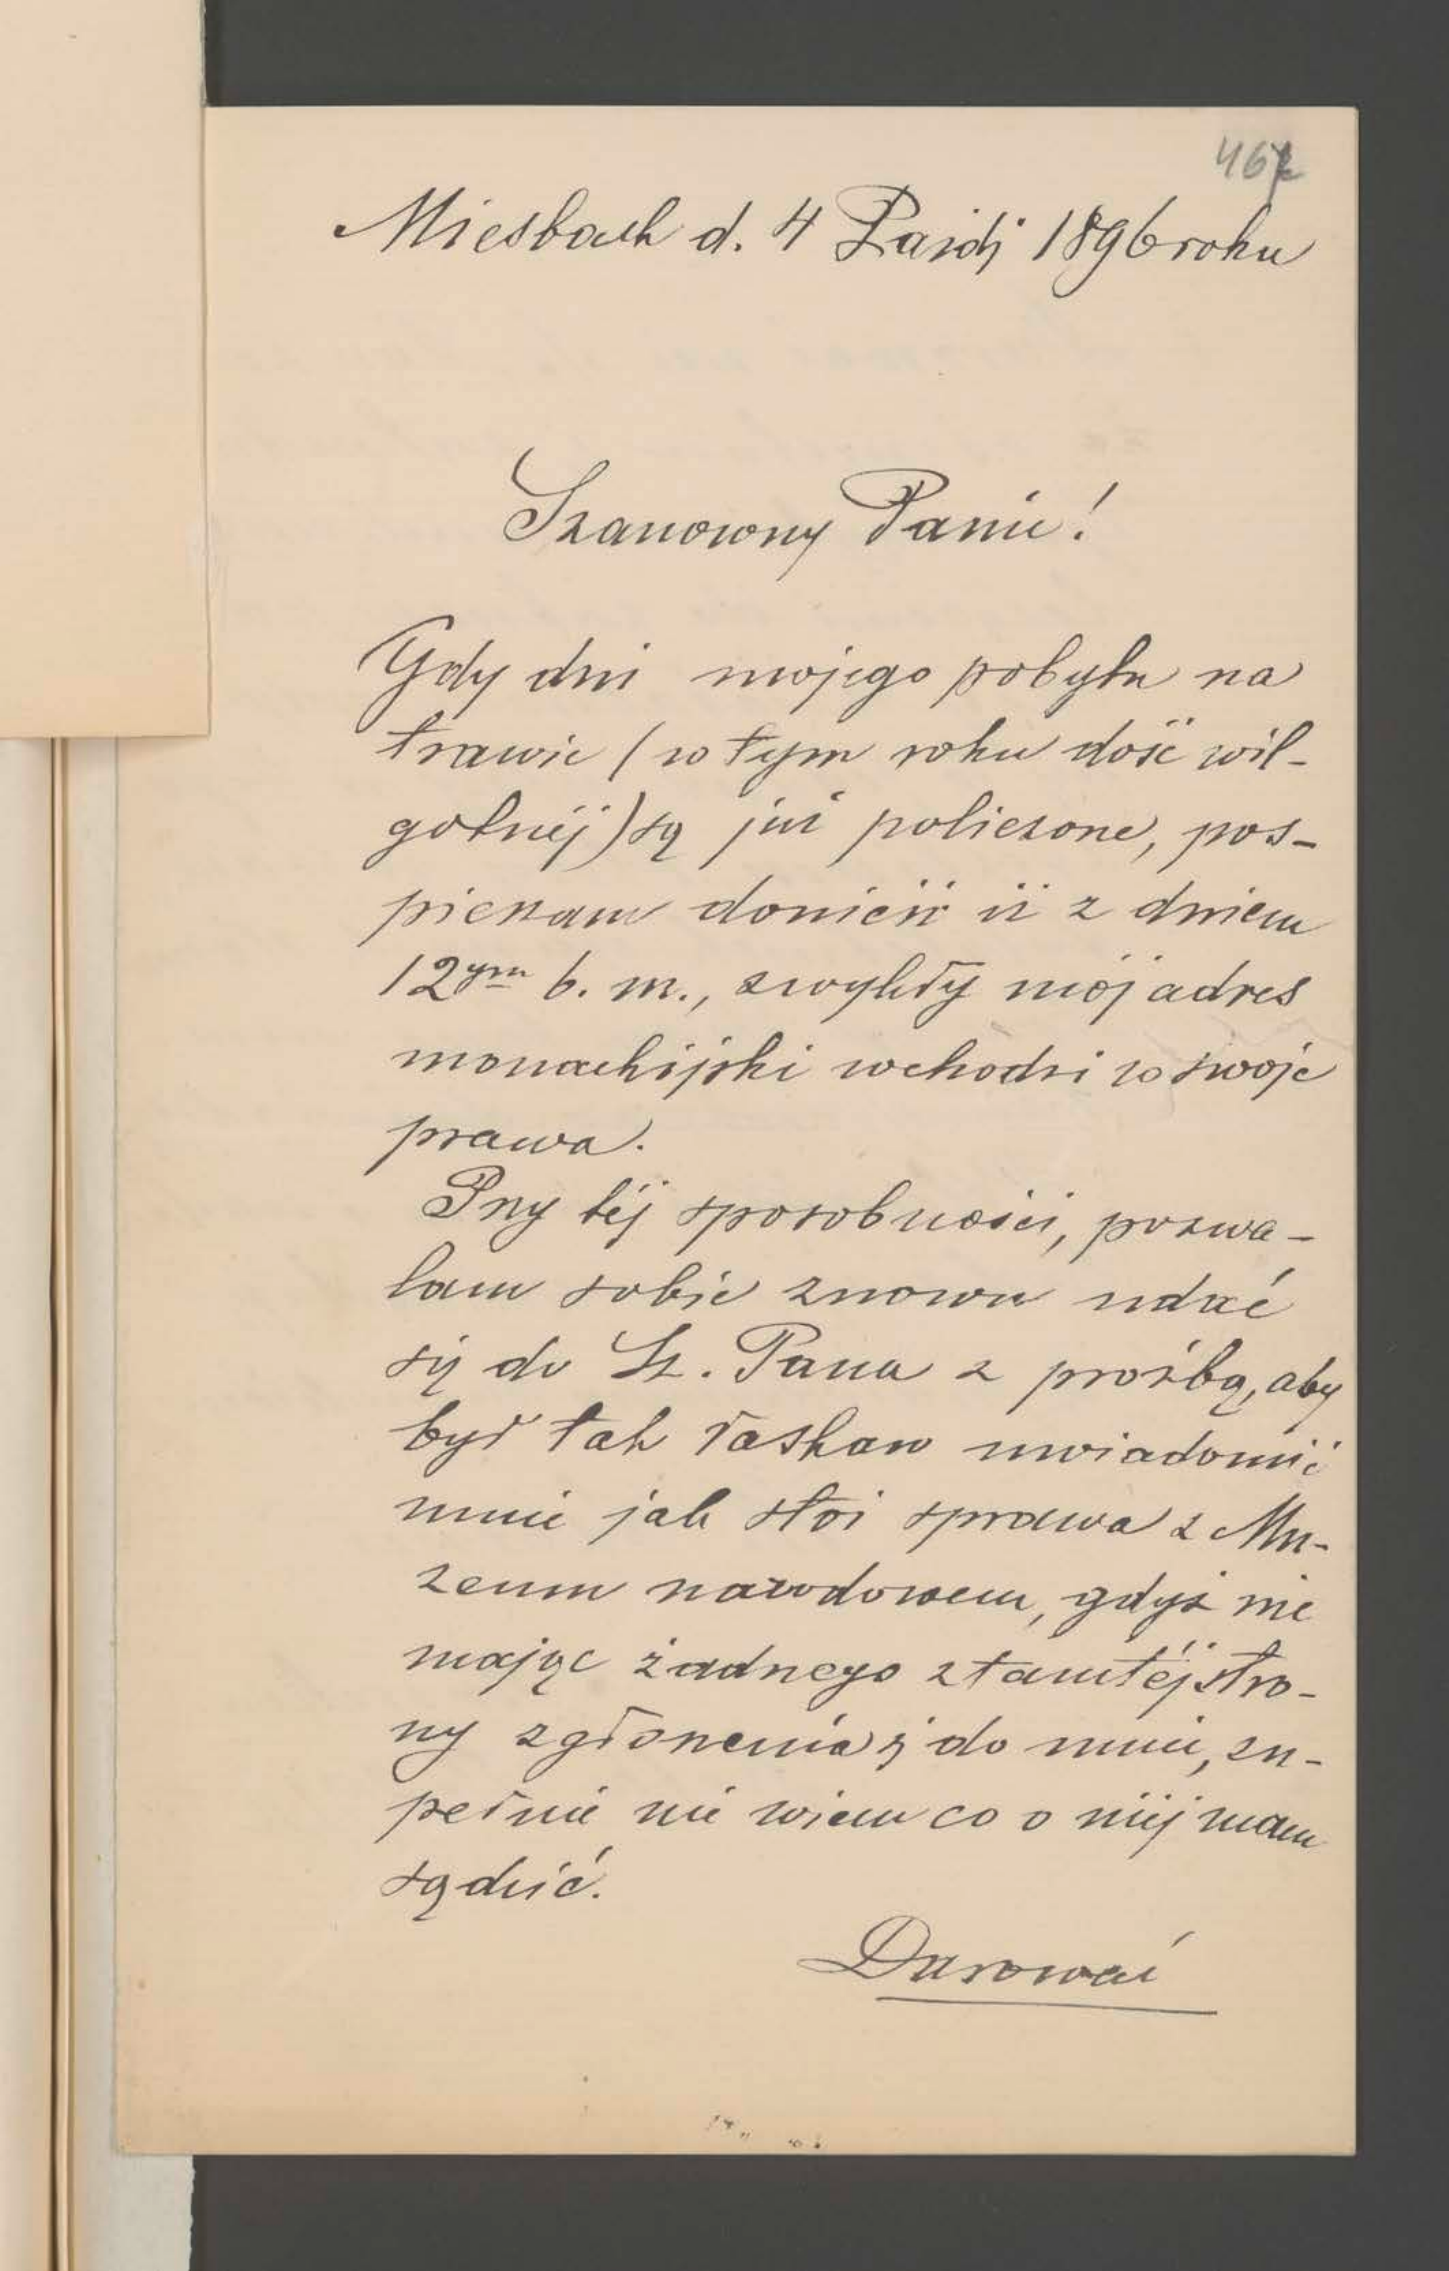 Miesbach d. 4 Paźdź 1896 roku
Szanowny Panie!
Gdy dni mojego pobytu na
trawie (w tym roku dość wil-
gotnéj) są już policzone, pos-
pieszam donieść iż z dniem
12ym b. m., zwykły mój adres
monachijski wchodzi w swoje
prawa.
Przy téj sposobności, pozwa-
lam sobie znowu udać
się do Sz. Pana z prośbą, aby
był tak łaskaw uwiadomić
mnie jak stoi sprawa z Mu-
zeum narodowem, gdyż nie
mając żadnego ztamtéj stro-
ny zgłoszenia do mnie, zu-
pełnie nie wiem co o niéj mam
sądzić.
Darować